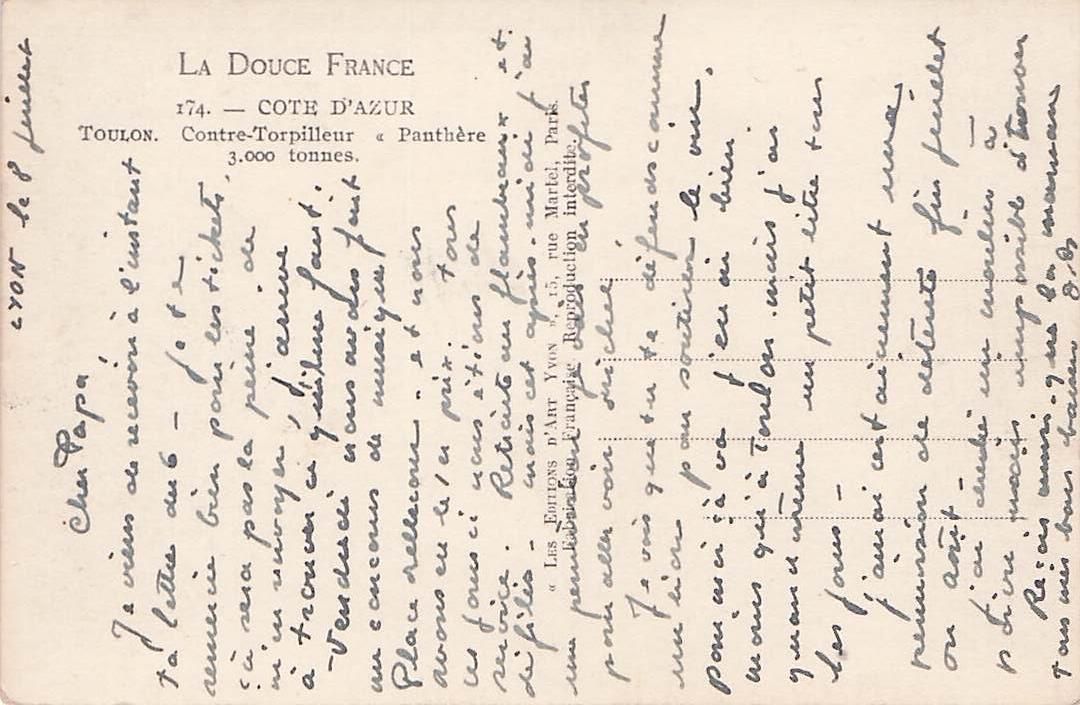 LA DOUCE FRANCE
174. — COTE D'AZUR
TOULON. Contre-Torpilleur « Panthère
3.000 tonnes.
« LES EDITIONS D'ART YVON », 15, rue Martel, Paris.
Fabrication Française Reproduction interdite.
LYON le 8 juillet
Cher Papa,
Je viens de recevoir à l'instant
ta lettre du 6 — Je te
remercie bien pour les tickets,
ça sera pas la peine de
m'en envoyer, j'arrive
à trouver ce qu'il me faut.
Vendredi nous avons fait
un concours de musique
Place Bellecour. et nous
avons eu le 1er prix. tous
ces jours ci nous étions de
service. Retraite en flambeaux et.
défilé — mais cet après-midi j'ai
une j'en profiter
pour aller voir Michel
Je vois que tu te défends comme
un lion pour soutenir le vin.
pour moi ça va j'en ai bien
moins qu'à Toulon. mais j'ai
quand même un petit litre tous
les jours —
J'aurai certainement une
permission de détente fin juillet
ou août —
J'ai
mais impossible d'trouver
Reçois ainsi que la maman
mes bons baisers